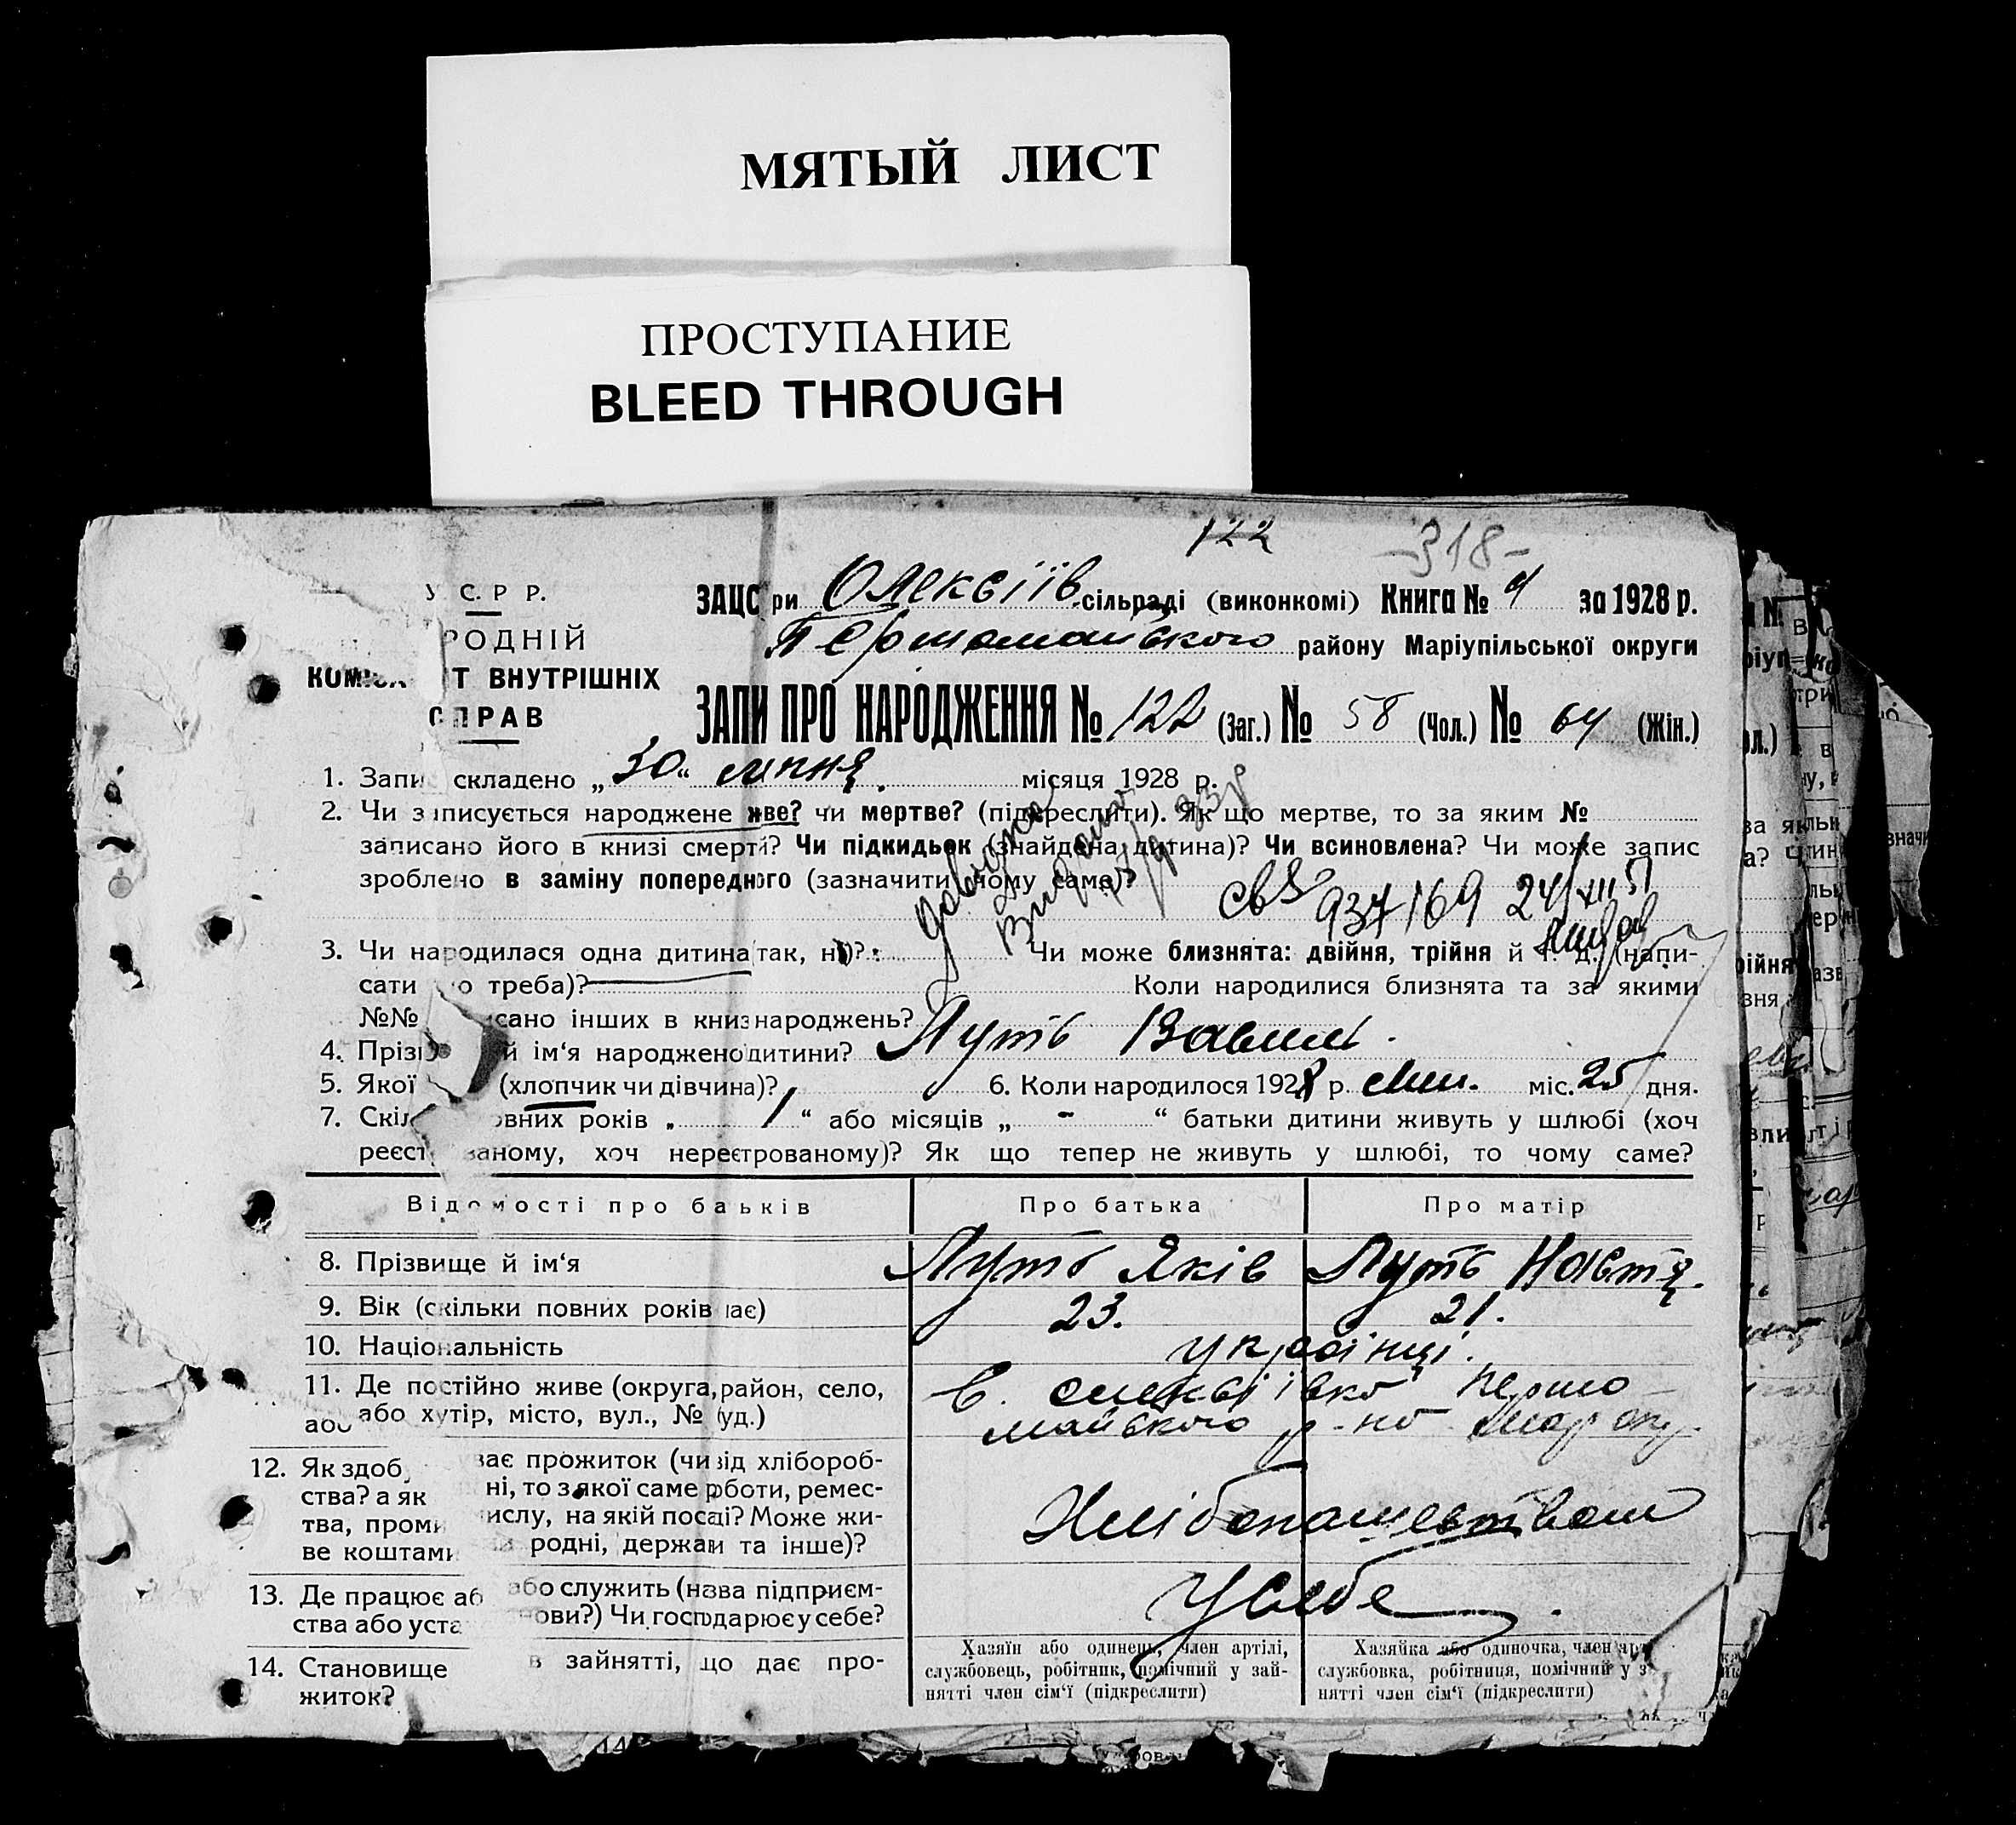 МЯТЫЙ ЛИСТ
ПРОСТУПАНИЕ
BLEED THROUGH
122
-318-
У. С. Р Р.
РОДНІЙ
Т ВНУТРІШНІХ
СПРАВ
ЗАЦС ри Олексіїв. сільраді (виконкомі) Книга № 4 за 1928 р.
Першомайського району Маріупільської округи
ЗАПИ ПРО НАРОДЖЕННЯ № 122 (Заг.) № 58 (Чол.) № 64 (Жін.)
1. Запис складено „ 30 “ липня місяця 1928 р.
2. Чи записується народжене живе? чи мертве? (підкреслити). Як що мертве, то за яким №
записано його в книзі смерті? Чи підкидьок (знайдена дитина)? Чи всиновлена? Чи може запис
зроблено в заміну попереднього (зазначити чому саме)?
937169 24/VIII 51
3. Чи народилася одна дитина (так, ні)? Чи може близнята: двійня, трійня й т. д. (напи-
сати що треба)? Коли народилися близнята та за якими
№№ сано інших в книз народжень?
4. Прізв й ім‘я народжено дитини? Луть Вавил.
5. Якої (хлопчик чи дівчина)? 6. Коли народилося 1928 р. лип. міс. 25 дня.
7. Скіл овних років „ 1 “ або місяців „ - “ батьки дитини живуть у шлюбі (хоч
реєст ваному, хоч нереєтрованому)? Як що тепер не живуть у шлюбі, то чому саме?
Відомості про батьків Про батька Про матір
8. Прізвище й ім‘я Луть Яків Луть Настя.
9. Вік (скільки повних років має) 23. 21.
10. Національність українці.
11. Де постійно живе (округа, район, село, с. Олексіївка Першо-
або хутір, місто, вул., № буд.) майського р-на Мар окр.
12. Як здоб ває прожиток (чи від хлібороб-
ства? а як ні, то з якої саме роботи, ремес-
тва, проми ислу, на якій посаді? Може жи-
ве коштами родні, держави та інше)? Хлібопашеством
13. Де працює аб або служить (назва підприєм-
ства або уста нови?) Чи господарює у себе? У себе.
14. Становище в зайнятті, що дає про-
житок?
Хазяїн або одинець, член артілі,
службовець, робітник, помічний у зай-
нятті член сім‘ї (підкреслити)
Хазяйка або одиночка, член арт
службовка, робітниця, помічний у з
нятті член сім‘ї (підкреслити)